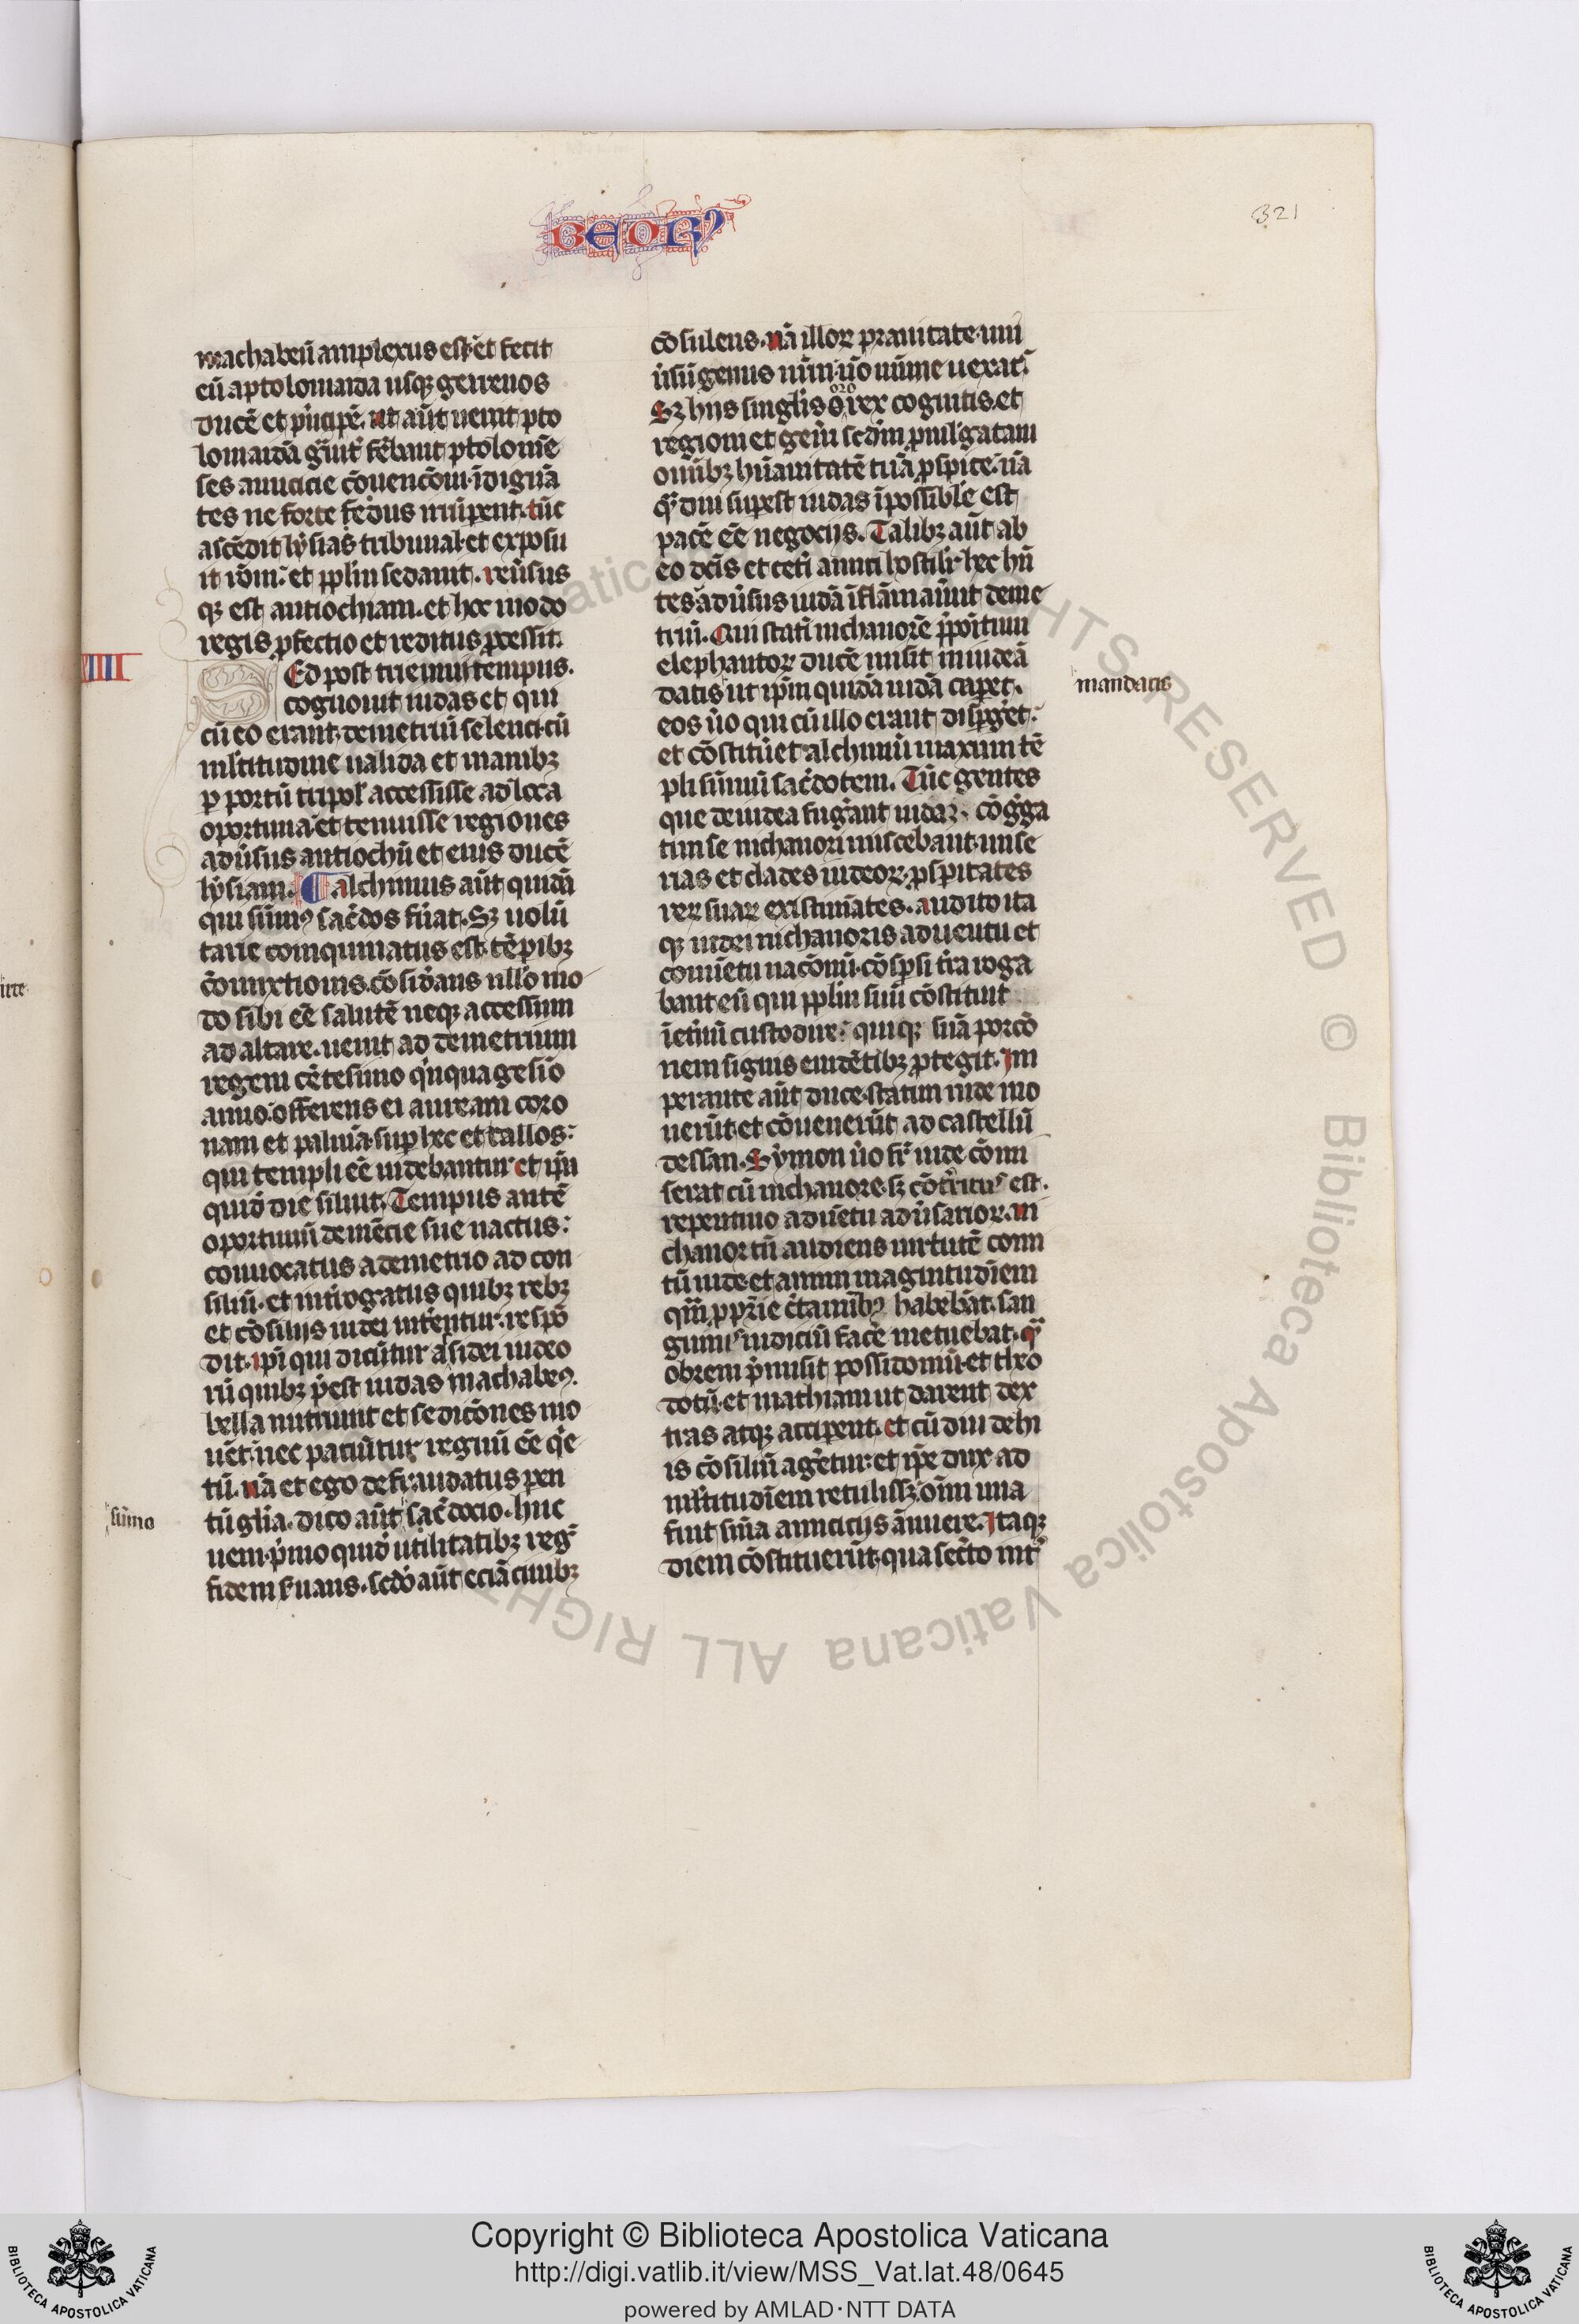 321
machabeū amplexus est et fecit
eū a ptolomaida usq; gerrenos
ducē et p̄ncipē. ut aūt uenit pto
lomaidā g̃uit̃ fēbant ptolome
ses amicicie cōuencōm ī dignā
tes ne forte fedus irrūpent. tūc
ascēdit lysias tribunal et exposu
it rōm̄. et pplm sedauit. reūsus
q; est antiochiam. et hoc modo
regis pfectio et reditus pcessit.
XIIII
Ed post triennii tempus.
cognouit iudas et qui
cū eo erant demetriū seleuci cū
m̄ltitudine ualida et nauib;
p portū tripol' accessisse ad loca
oportuna et tenuisse regiones
adūsus antiochū et eius ducē
lysiam. alchimus aūt quidā
qui sūm9 sac̄dos fūat. Sz uolū
tarie coinquinatus est tēpib;
cōmixtionis. cōsid̄ans nullo mo
do sibi eē salutē neq; accessum
ad altare. uenit ad demetrium
regem cētesimo q̇nquagesīo
anno. offerens ei auream coro
nam et palmā. sup hec et tallos.
qui templi eē uidebantur et ip̄a
quid̄ die siluit. Tempus autē
oportunū demēcie sue nactus:
conuocatus a demetrio ad con
siliū. et int̄rogatus quib; reb;
et cōsiliis iudei nit̄entur. respō
dit. ip̄i qui dicūtur asidei iudeo
rū quib; p̄est iudas machabe9.
bella nutriunt et sedicōnes mo
uēt. nec paciūtur regnū eē q̇e
tū. nā et ego defraudatus paren
tū glīa. dico aūt sac̄docio. huc
sūmo
ueni. p̄mo quid̄ utilitatib; reg̃
fidem s̄uans. sedō aūt eciā ciuib;
cōsulens. nā illor prauitate uni
ūsū genus nr̄m ūo nīme uexat̃.
Sz hiis singlīs oro o rex cognitis. et
regioni et gen̄i scdm puulgatam
omīb; hūanitatē tuā pspice. nā
q̃ diu supest iudas īpossibl'e est
pacē eē negociis. Talib; aūt ab
eo dc̄is et cet̄i amici hostilr̄ se hn̄
tes adūsus iudā īflāmauūt deme
triū. Qui statī nichanorē ppoitum
elephantor ducē misit in iudeā
datis ut ip̄m quidā iudā capet.
mandatis
eos ūo qui cū illo erant dispg̃et:
et cōstitūet alchimū maximi tē
pli sūmū sac̄dotem. Tūc gentes
que de iudea fug̃ant iudā. cōg̃ga
tim se nichanori miscebant. mise
rias et clades iudeor pspitates
rer suar existimātes. audito ita
q; iudei nichanoris aduentu et
conuētu nacōnū. cōspsi t̃ra roga
bant eū qui pplm suū cōstituit
ī et̃nū custodire. quiq; suā porcō
nem signis euidētib; ptegit. Im
perante aūt duce. statim inde mo
uerūt et cōuenerūt ad castellū
dessau. Symon ūo fr̄ iude cōmi
serat cū nichanore. sz cōt̃ritus est.
repentino aduētu adūsarior. ni
chanor tn̄ audiens uirtutē comi
tū iude. et animi magnitudīem
quā p prīe c̃taminib9 habebāt. san
guīs iudiciū facē metuebat. q̃
obrem p̄misit possidoniū. et theo
dotū. et mathiam ut darent dex
tras atq; accipent. et cū diu de hi
is cōsiliū ag̃etur. et ip̄e dux ad
m̄ltitudīem retulissz. oīm una
fuit sīna amiciciis ānuere. Itaq;
diem cōstituerūt. qua sec̃to int̃
Copyright © Biblioteca Apostolica Vaticana
http://digi.vatlib.it/view/MSS_Vat.lat.48/0645
powered by AMLAD·NTT DATA